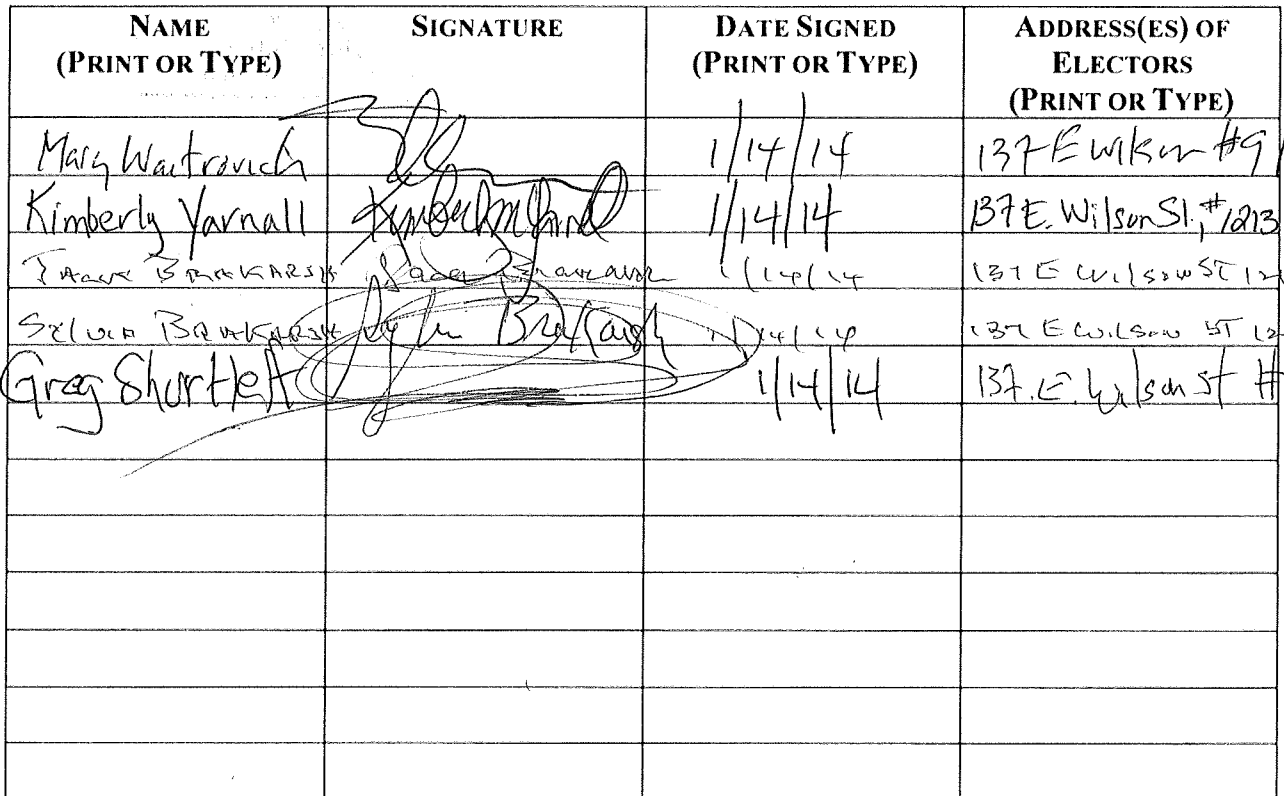 NAME (PRINT OR TYPE) SIGNATURE DATE SIGNED (PRINT OR TYPE) ADDRESS(ES) OF ELECTORS (PRINT OR TYPE)
Mary Waitrovich 1/14/14 137 E Wilson #9
Kimberly Yarnall Kimberly Yarnall 1/14/14 137 E. Wilson St, #1213
BRAKARSH 1/14/14 137 E Wilson ST 12
Sylvia BRAKARSH Sylvia Brakarsh 1/14/14 137 E Wilson ST 12
Greg Shurtleff 1/14/14 137. E. Wilson St #